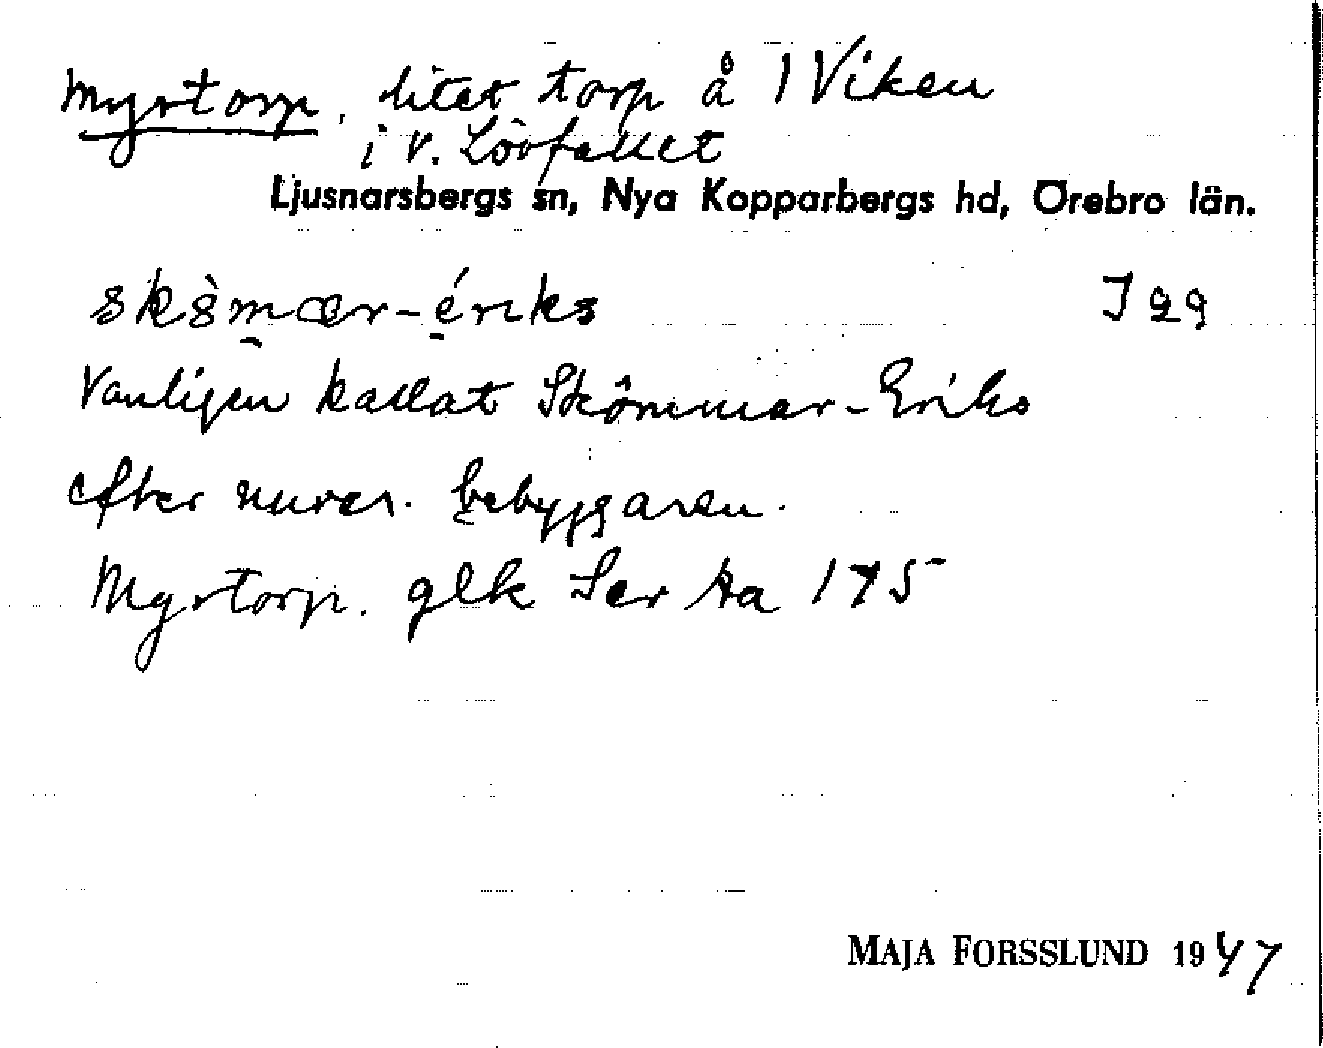 Myrtorp, litet torp å 1 Viken
i V. Lövfallet
Ljusnarsbergs sn, Nya Kopparbergs hd, Örebro län.
skö̀mær-ériks I 29
Vanligen kallat Skömmar-Eriks
efter nuvar. bebyggaren.
Myrtorp. glk Ser ka 175
MAJA FORSSLUND 1947